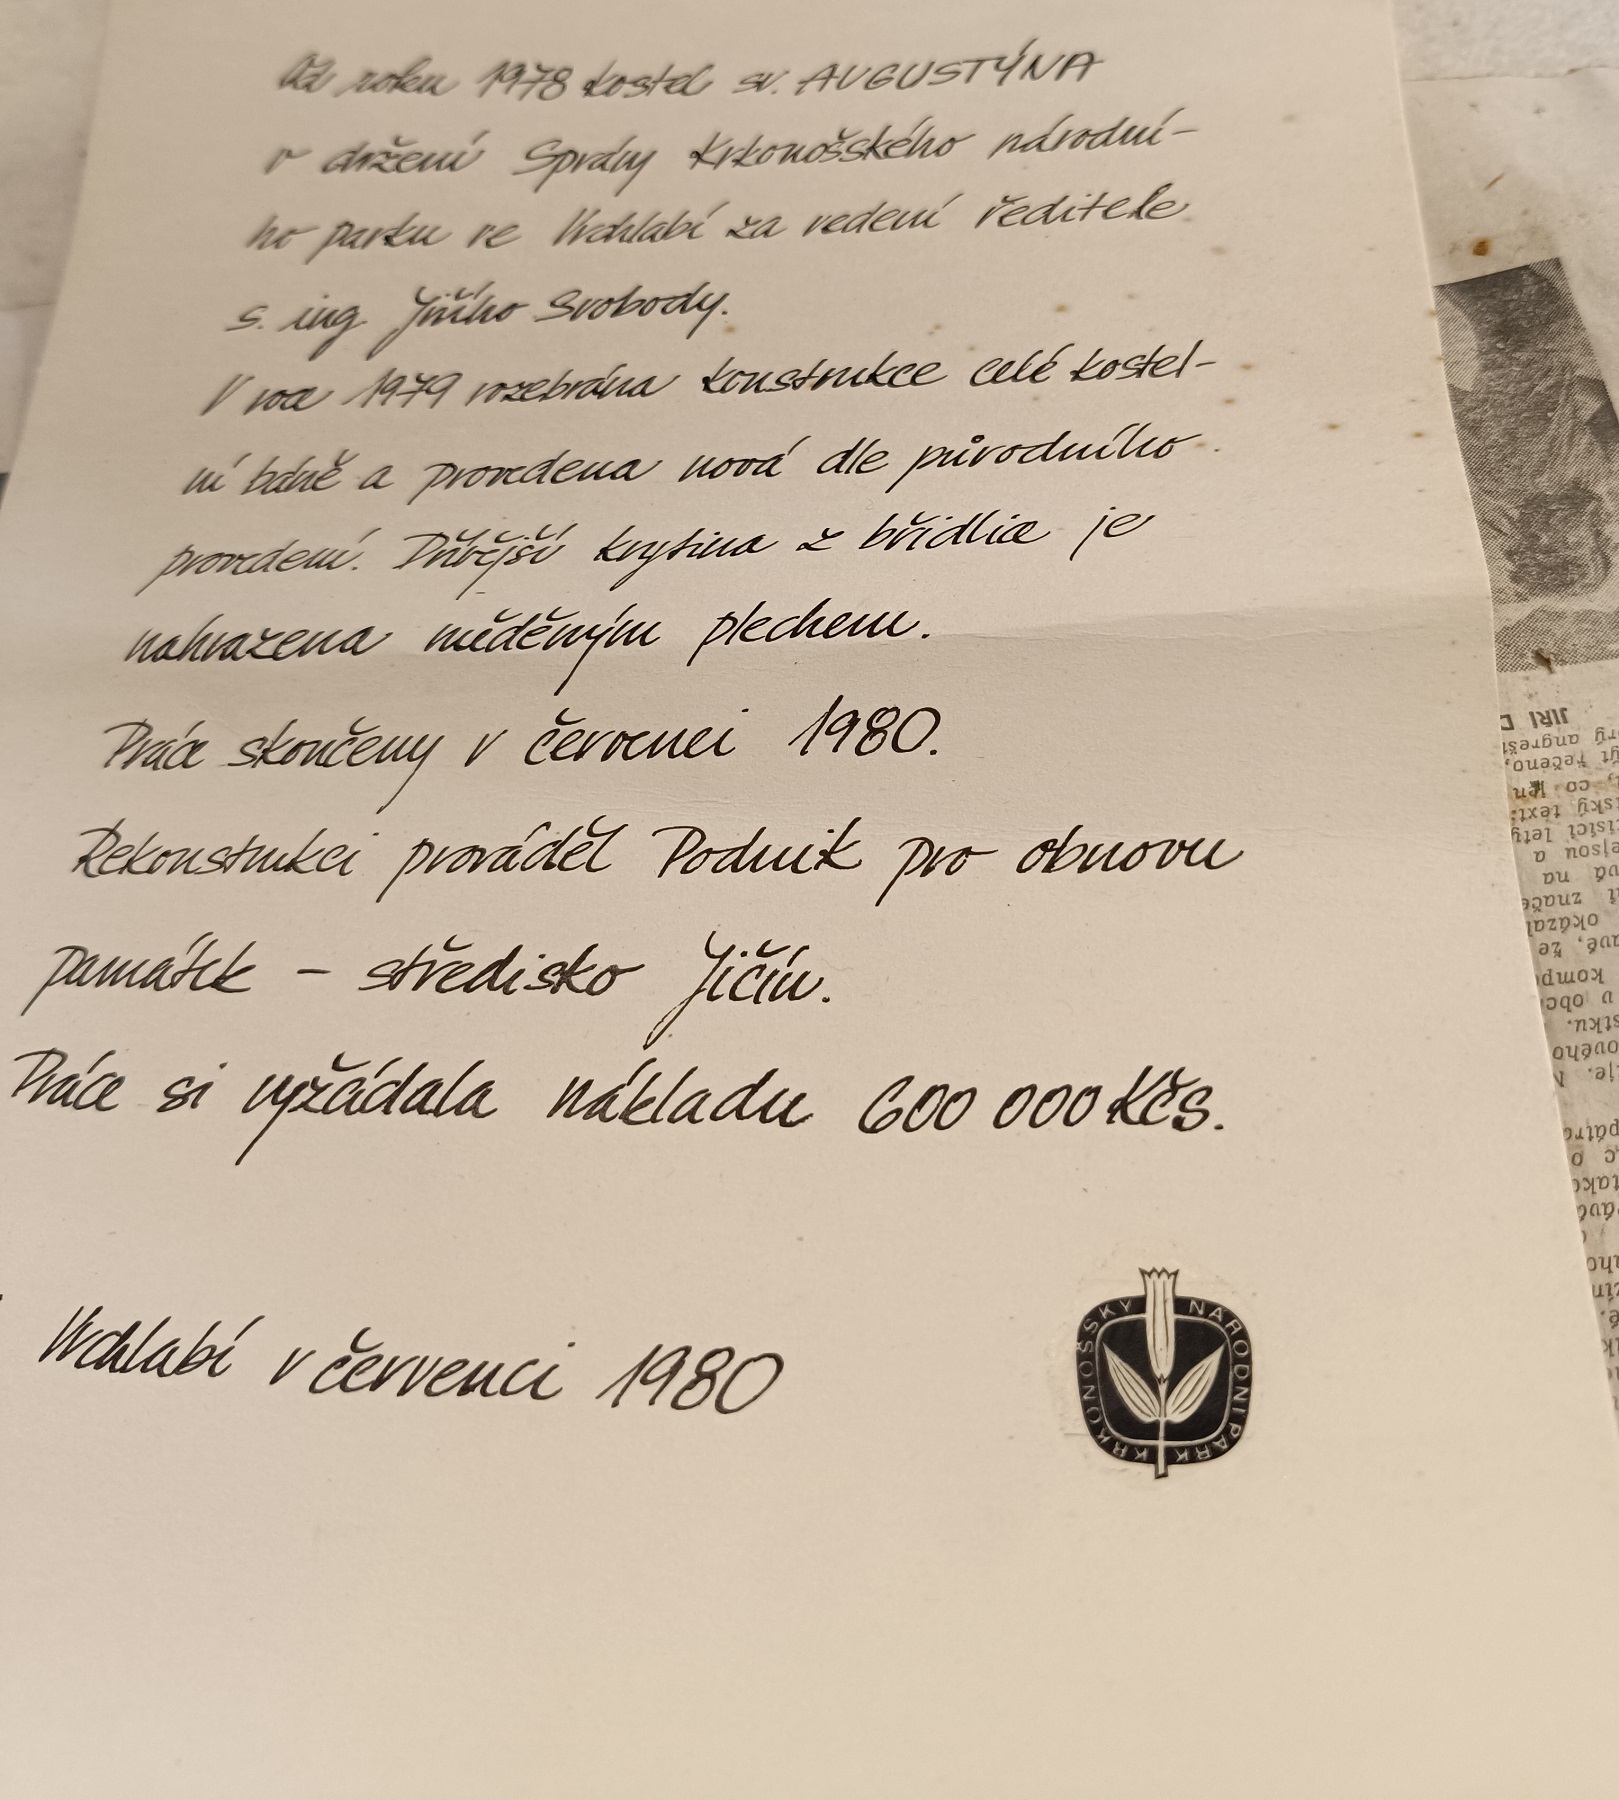 Od roku 1978 kostel sv. AUGUSTÝNA
v držení Správy Krkonošského národní-
ho parku ve Vrchlabí za vedení ředitele
s. ing. Jiřího Svobody.
V roce 1979 rozebrána konstrukce celé kostel-
ní báně a provedena nová dle původního
provedení. Dřívější krytina z břidlice je
nahrazena měděným plechem.
Práce skončeny v červenci 1980.
Rekonstrukci prováděl Podnik pro obnovu
památek – středisko Jičín.
Práce si vyžádala nákladu 600 000 Kčs.
Vrchlabí v červenci 1980
KRKONOŠSKÝ NÁRODNÍ PARK
JIŘÍ